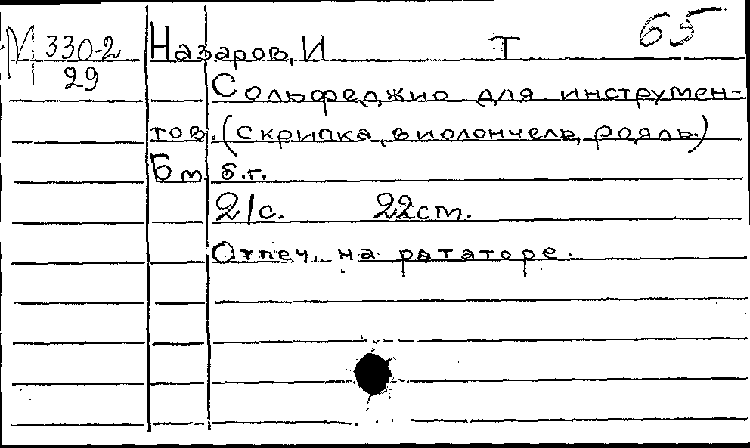 65
М 330-2 Назаров, И Т
29
Сольфеджио для инструмен-
тов. (скрипка, виолончель, рояль.)
Бм б.г.
21с. 22см.
Отпеч. на рататоре.